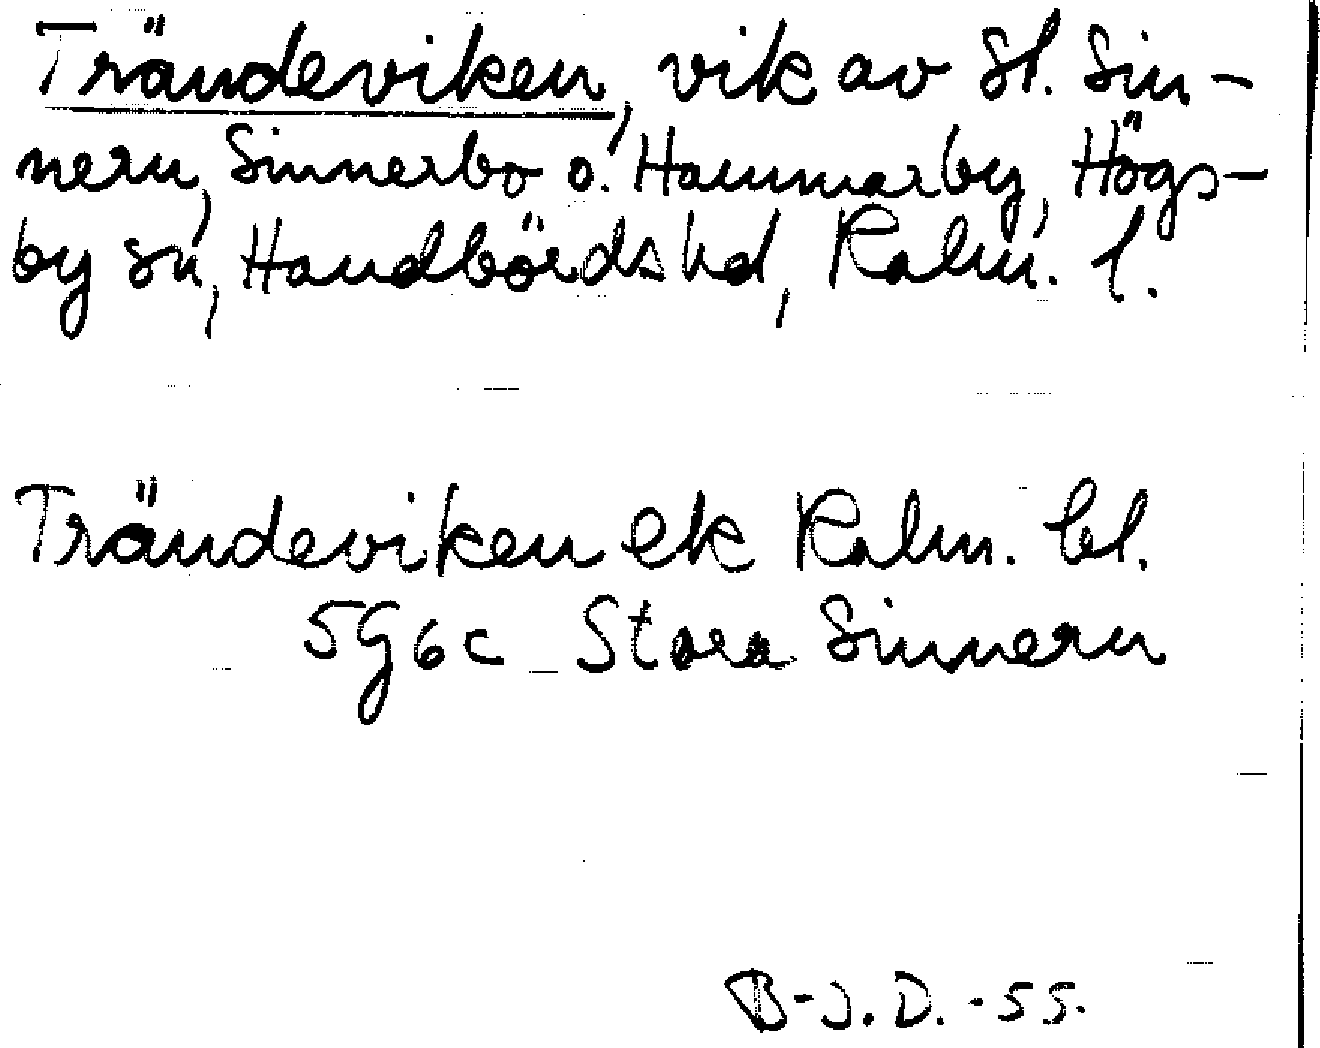 Trändeviken, vik av St. Sin-
nern, Sinnerbo o. Hammarby, Högs-
by sn, Handbörds hd, Kalm. l.
Trändeviken ek Kalm. bl.
5G6c Stora Sinnern
B-J.D. -55.